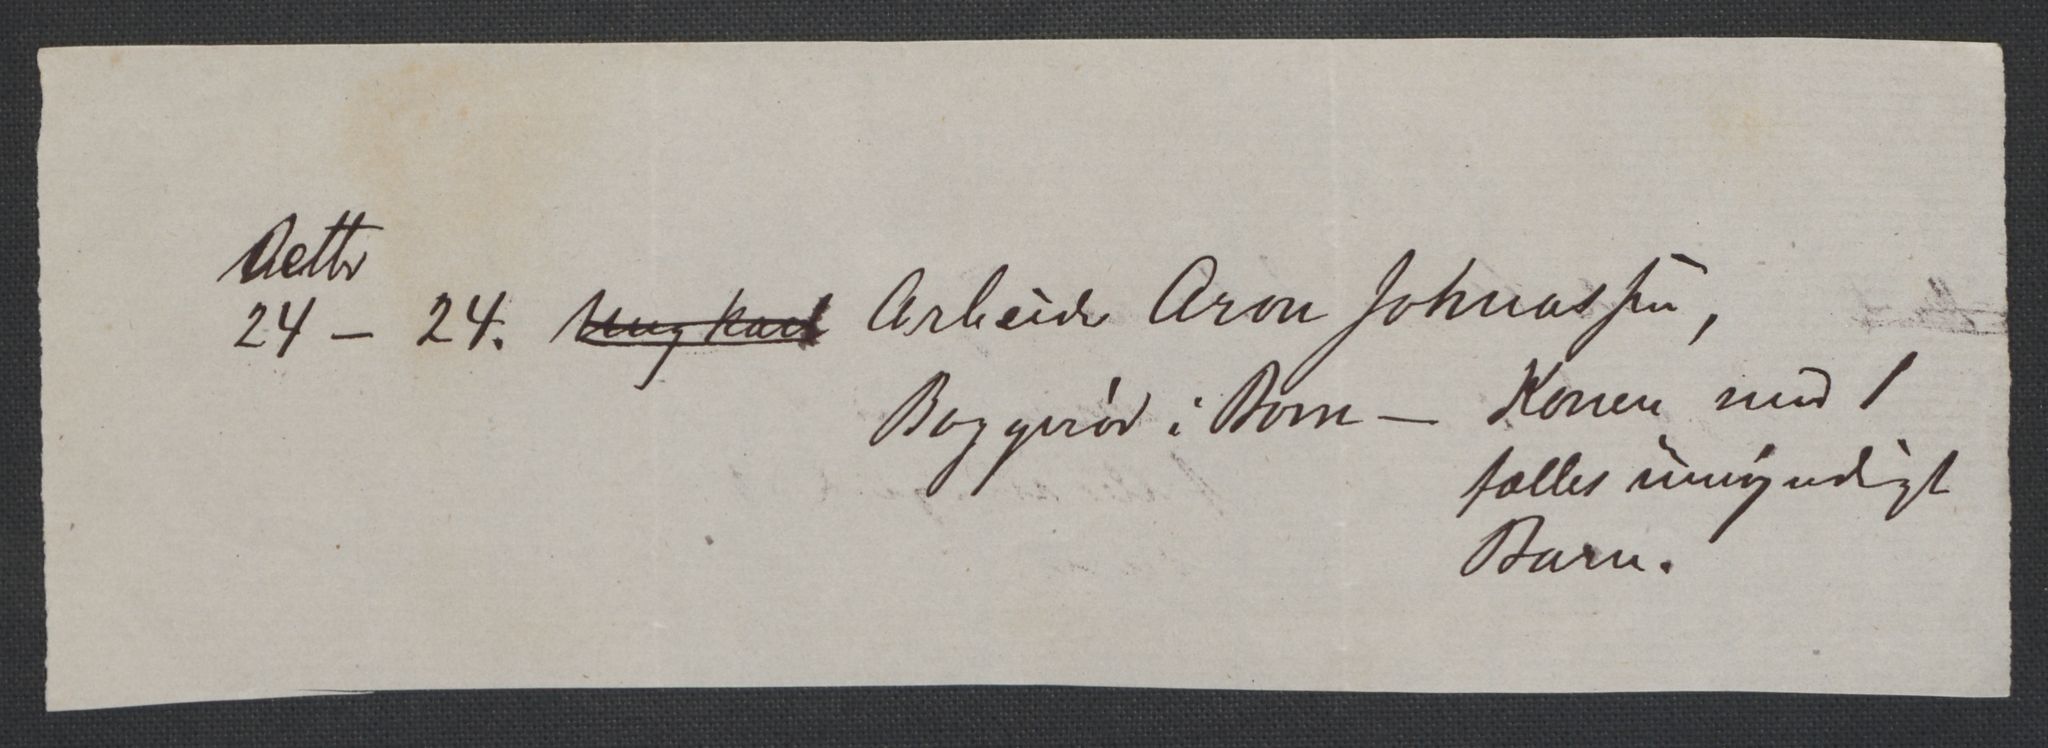 Aettr
24 – 24. Ung Karl Arbeider Aron Johnassen,
Boggerød i Born – Konen med 1
fælles umyndigt
Barn.